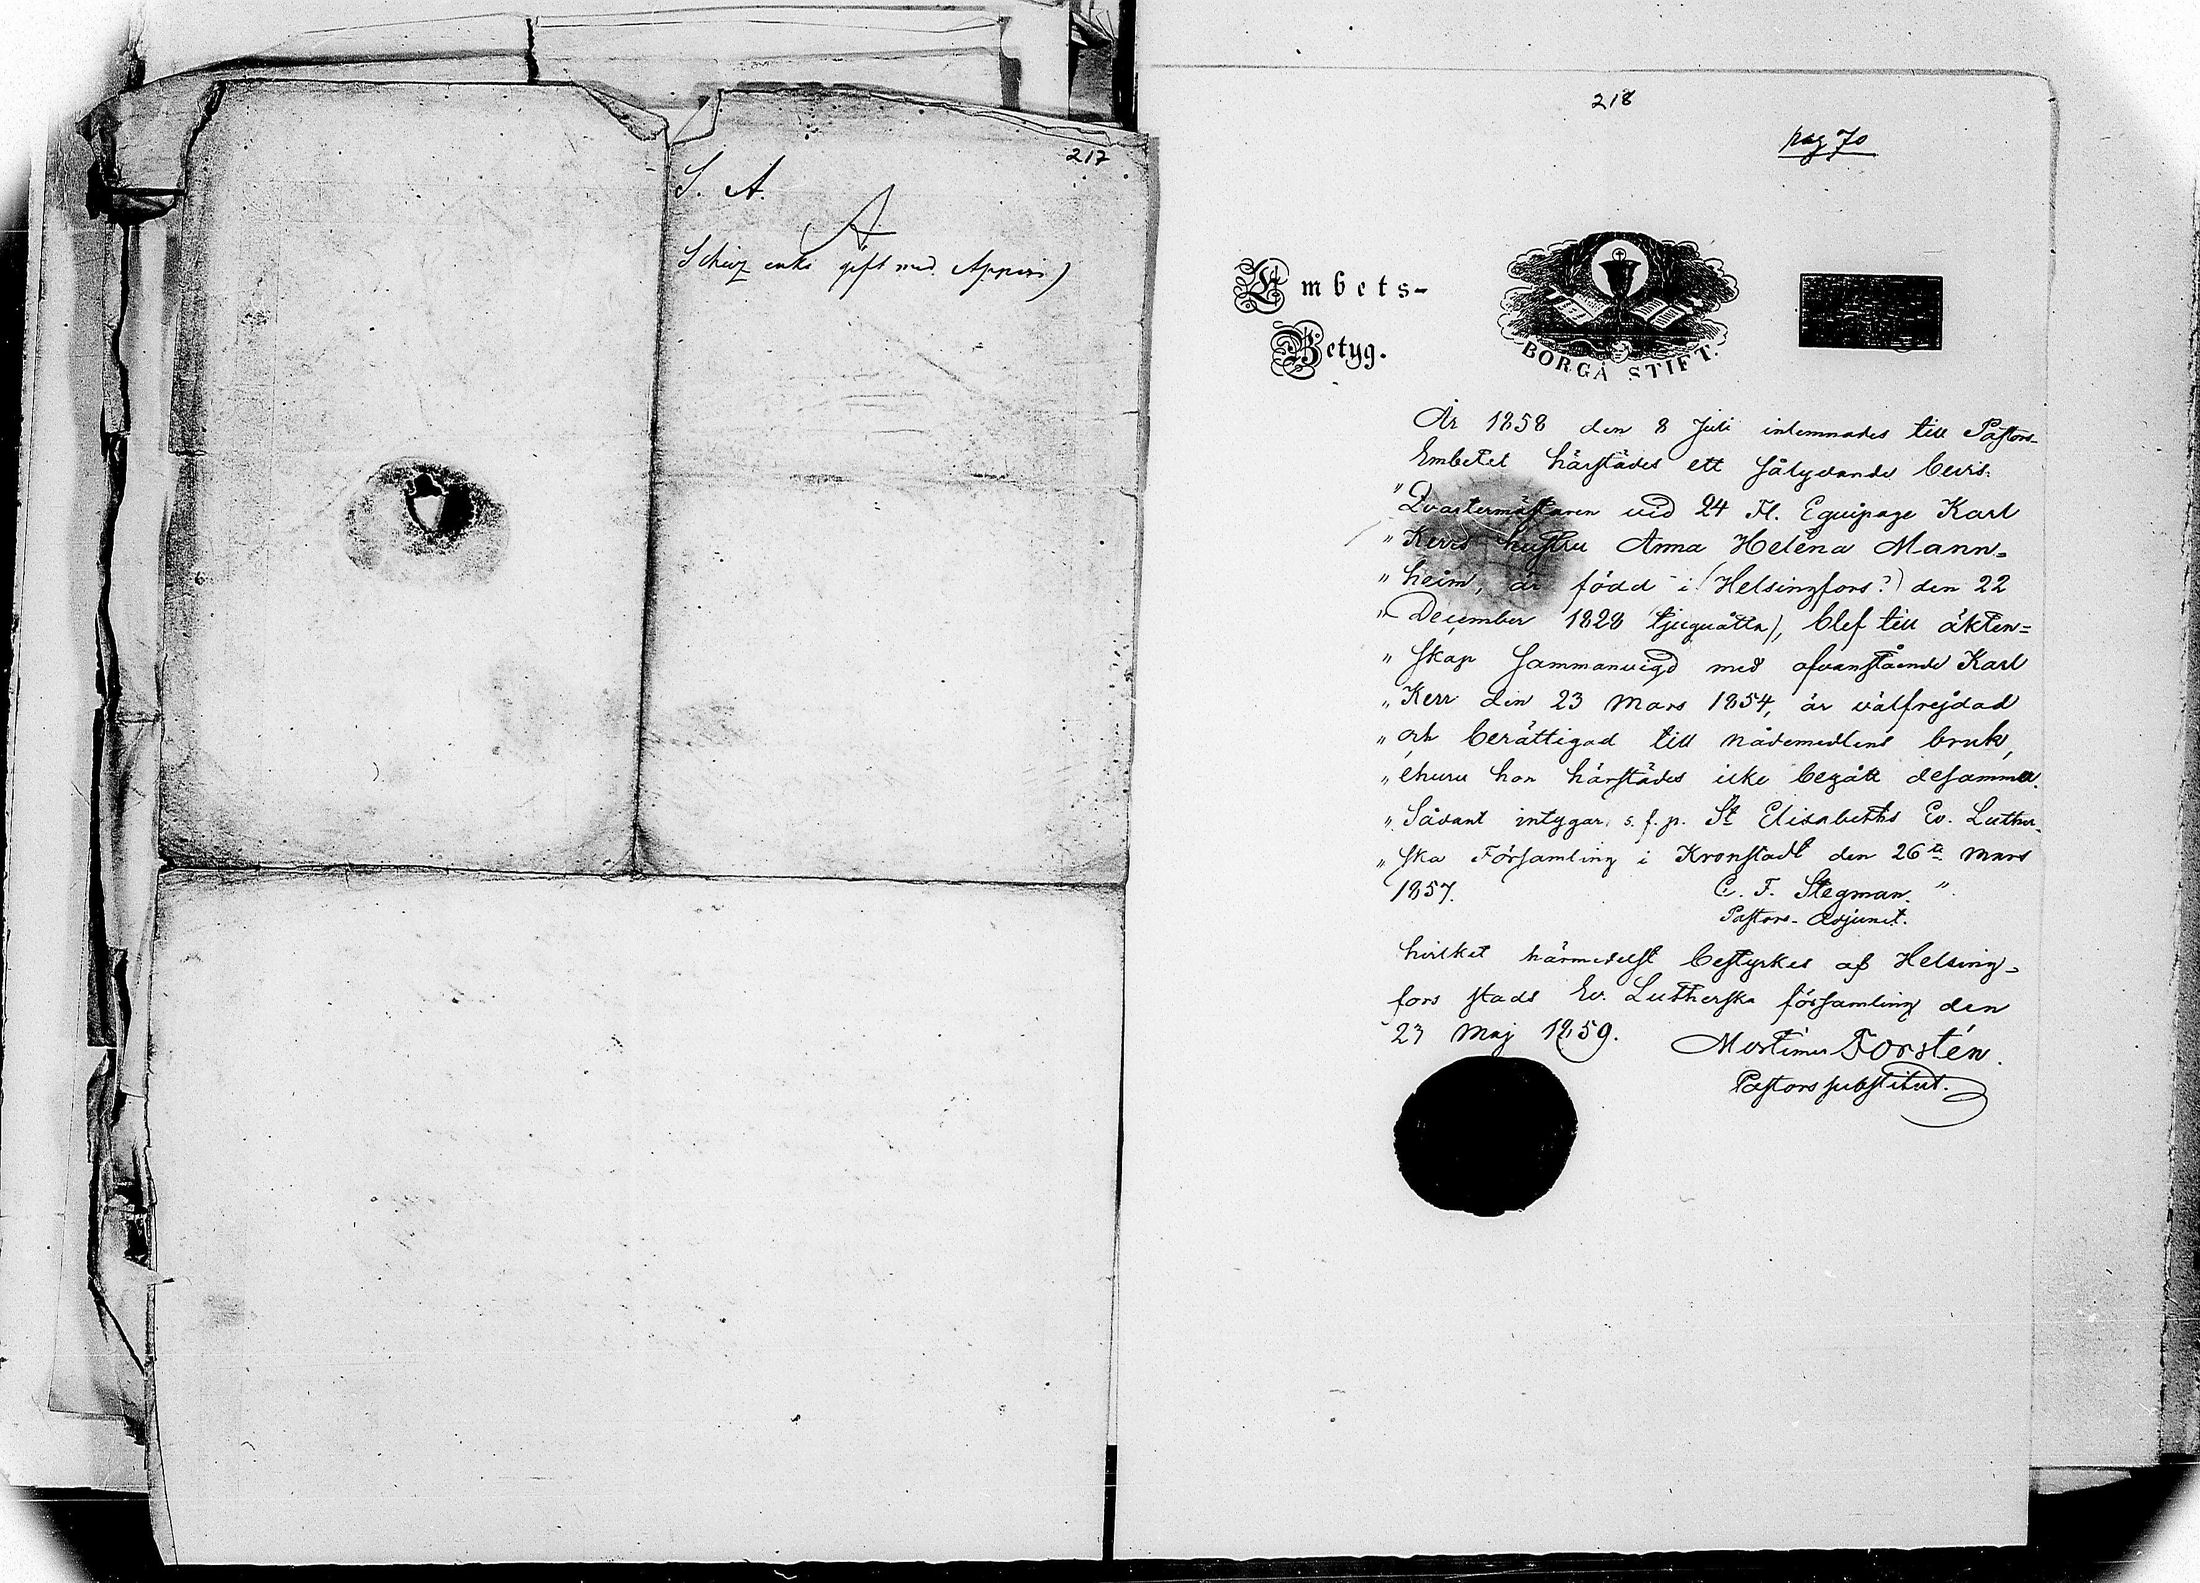 217
S. A.
A.
enka gift med
218
pag 70
Embets-
Betyg.
BORGÅ STIFT.
År 1858 den 8 Juli inlemnades till Pastors-
Embetet härstädes ett sålydande bevis:
"Qvartermästaren vid 24 Fl. Equipage Karl
" Kerrs hustru Anna Helena Mann=
" heim, är född i (Helsingfors?) den 22
" December 1828 (tjuguåtta), blef till äkten=
" skap sammanvigd med ofvanstående Karl
" Kerr den 23 Mars 1854, är välfrejdad
" och berättigad till nådemedlens bruk,
" ehuru hon härstädes icke begått desamma.
" Sådant intygar, s. f. p. St Elisabeths Ev. Luther-
" ska Församling i Kronstadt den 26te Mars
1857. C. F. Stegman. "
Pastors-Adjunct.
hvilket härmedelst bestyrkes af Helsing-
fors stads Ev. Lutherska församling den
23 Maj 1859. Mortimer Forstén.
Pastorssubstitut.